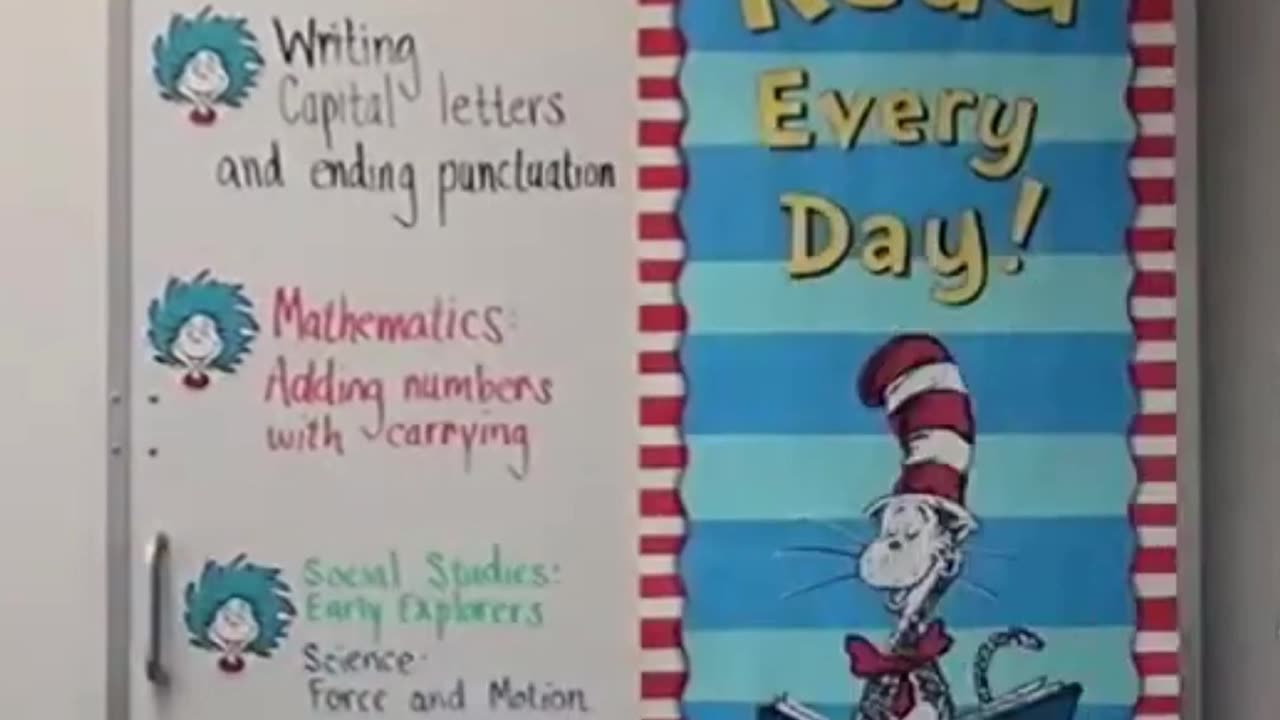 Writing
Capital letters
and ending punctuation
Mathematics:
Adding numbers
with carrying
Social Studies:
Early Explorers
Science:
Force and Motion
Read
Every
Day!